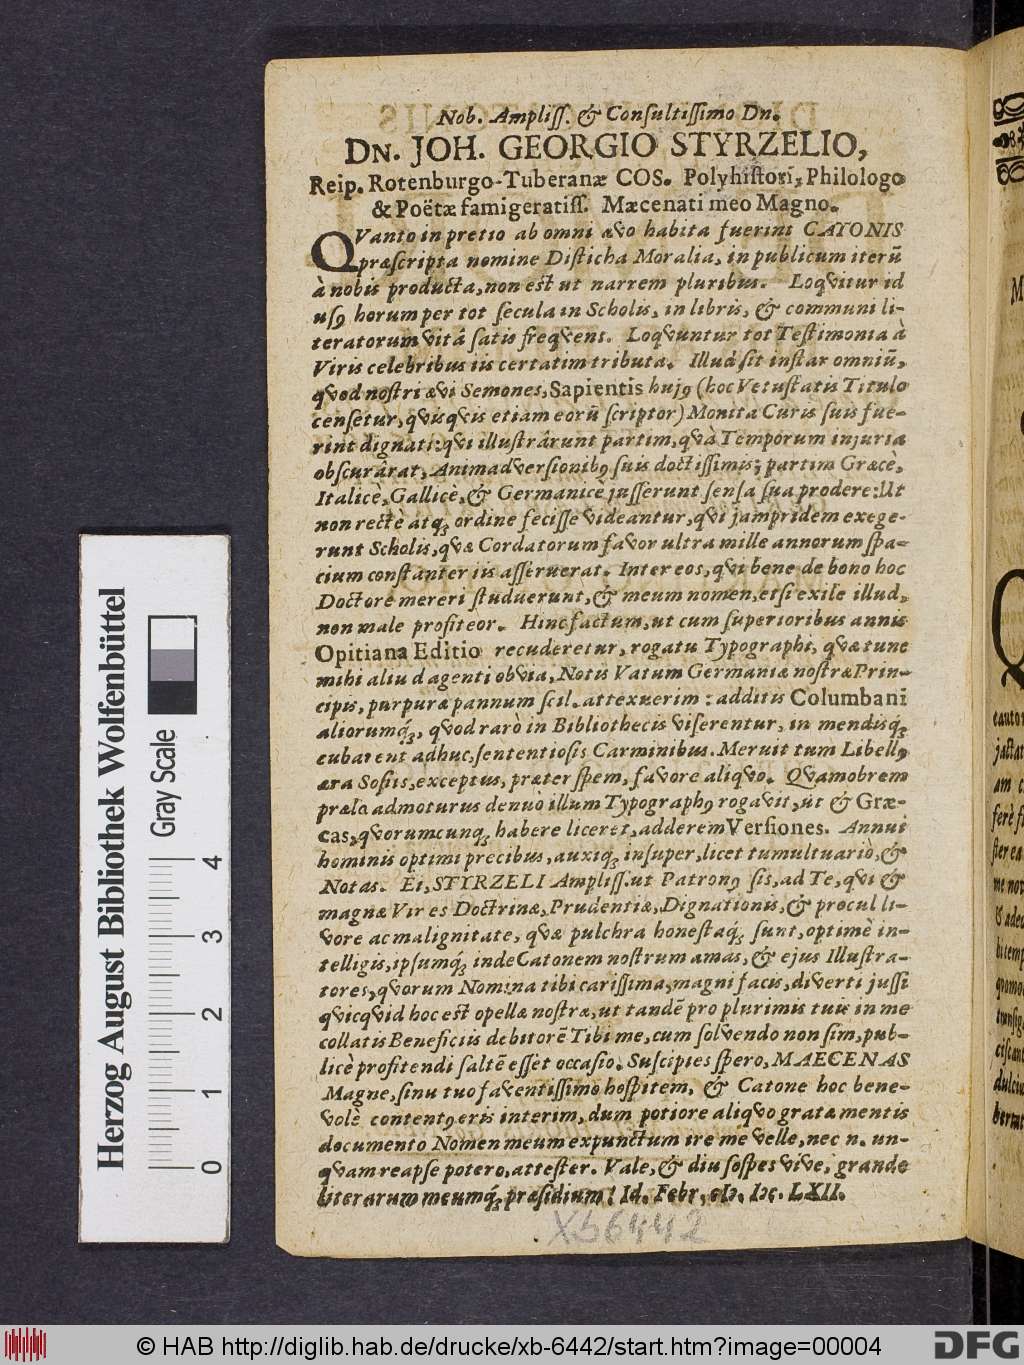 Nob. Ampliſſ. & Conſultiſſimo Dn.
DN. JOH. GEORGIO STYRZELIO,
Reip. Rotenburgo-Tuberanæ COS. Polyhiſtori, Philologo
& Poëtæ famigeratiſſ. Mæcenati meo Magno.
QVanto in pretio ab omni ævo habita fuerint CATONIS
præſcripta nomine Diſticha Moralia, in publicum iterũ
à nobis producta, non eſt ut narrem pluribus. Loqvitur id
uſꝰ horum per tot ſecula in Scholis, in libris, & communi li-
teratorum vitâ ſatis freqvens. Loqvuntur tot Teſtimonia à
Viris celebribus iis certatim tributa. Illud ſit inſtar omniũ,
qvod noſtri ævi Semones, Sapientis hujꝰ (hoc Vetuſtatis Titulo
cenſetur, qvisqvis etiam eorũ ſcriptor) Monita Curis ſuis fue-
rint dignati: qvi illuſtrârunt partim, qvà Temporum injuria
obſcurârat, Animadverſionibꝰ ſuis doctiſſimis; partim Græcè,
Italicè, Gallicè, & Germanicè juſſerunt ſenſa ſua prodere: Ut
non rectè atq; ordine feciſſe videantur, qvi jampridem exege-
runt Scholis, qvæ Cordatorum favor ultra mille annorum ſpa-
cium conſtanter iis aſſeruerat. Inter eos, qvi bene de bono hoc
Doctore mereri ſtuduerunt, & meum nomen, etſi exile illud,
non male profiteor. Hinc factum, ut cum ſuperioribus annis
Opitiana Editio recuderetur, rogatu Typographi, qvæ tunc
mihi aliud agenti obvia, Notis Vatum Germaniæ noſtræ Prin-
cipis, purpuræ pannum ſcil. attexuerim: additis Columbani
aliorumq́;, qvod rarò in Bibliothecis viſerentur, in mendisq́;
cubarent adhuc, ſententioſis Carminibus. Meruit tum Libellꝰ
æra Soſiis, exceptus, præter ſpem, favore aliqvo. Qvamobrem
præla admoturus denuò illum Typographꝰ rogavit, ut & Græ-
cas, qvorumcunq; habere liceret, adderem Verſiones. Annui
hominis optimi precibus, auxiq; inſuper, licet tumultuariò, &
Notas. Ei, STYRZELI Ampliſſ. ut Patronꝰ ſis, ad Te, qvi &
magnæ Vir es Doctrinæ, Prudentiæ, Dignationis, & procul li-
vore ac malignitate, qvæ pulchra honeſtaq́; ſunt, optimè in-
telligis, ipſumq́; inde Catonem noſtrum amas, & ejus Illuſtra-
tores, qvorum Nomina tibi cariſſima, magni facis, diverti juſſi
qvicqvid hoc eſt opellæ noſtræ, ut tandẽ pro plurimis tuis in me
collatis Beneficiis debitorẽ Tibi me, cum ſolvendo non ſim, pub-
licè profitendi ſaltẽ eſſet occaſio. Suſcipies ſpero, MAECENAS
Magne, ſinu tuo faventiſſimo hoſpitem, & Catone hoc bene-
volè contentꝰ eris interim, dum potiore aliqvo gratæ mentis
documento Nomen meum expunctum ire me velle, nec n. un-
qvam reapſe potero, atteſter. Vale, & diu ſoſpes vive, grande
literarum meumq́; præſidium! Id. Febr. cIↄ. Iↄc. LXII.
Xb6442
Herzog August Bibliothek Wolfenbüttel
Gray Scale
0 1 2 3 4
© HAB http://diglib.hab.de/drucke/xb-6442/start.htm?image=00004
DFG